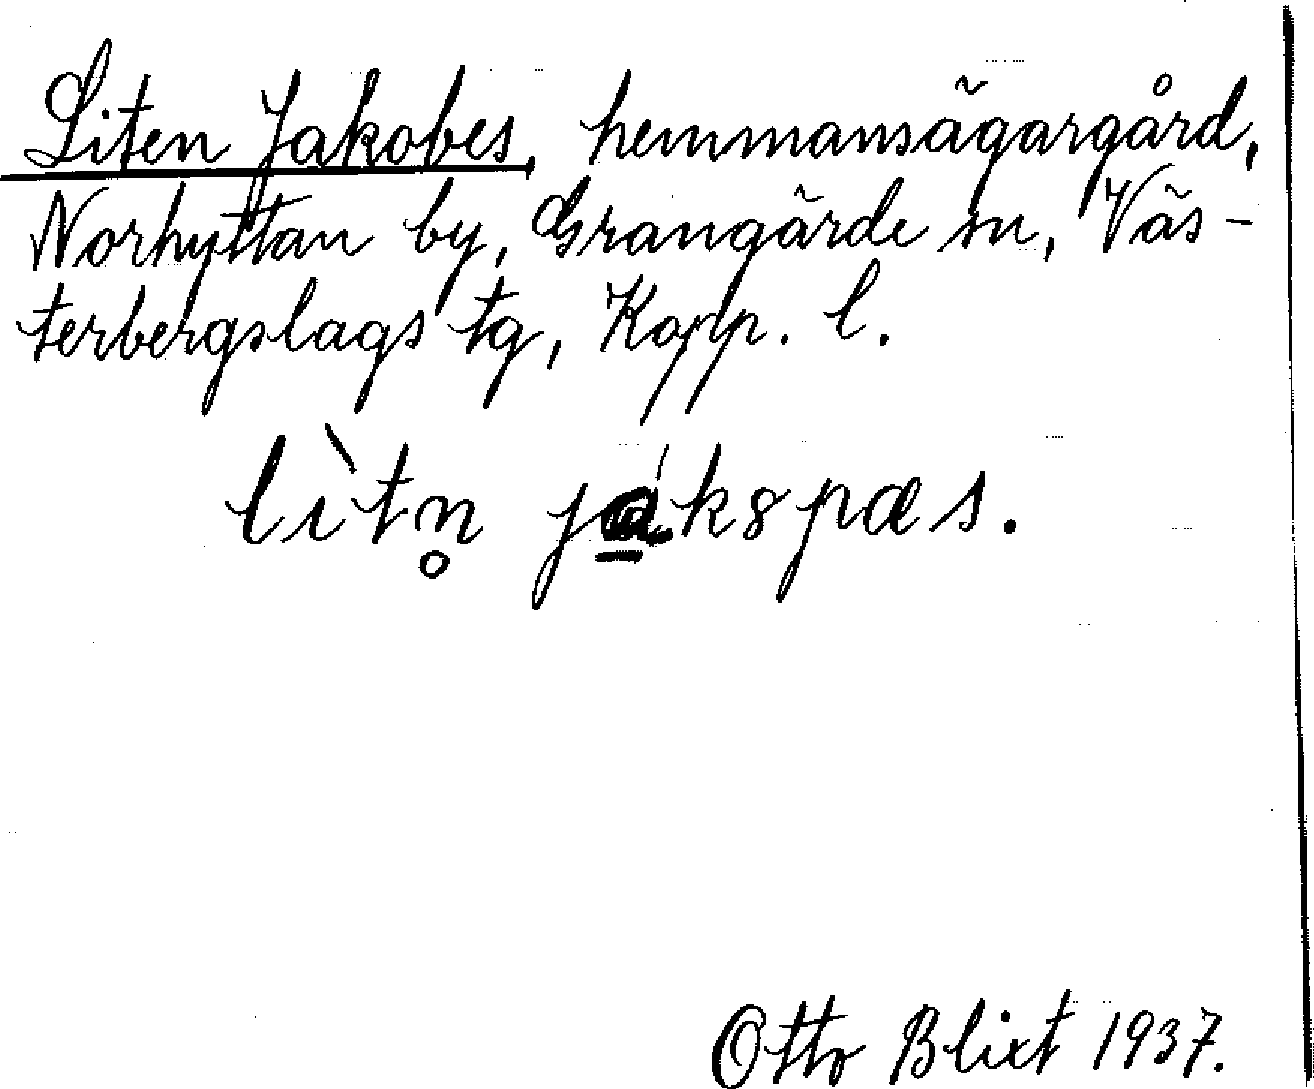 Liten Jakobes, hemmansägargård,
Norhyttan by, Grangärde sn, Väs-
terbergslags tg, Kopp. l.
lìtn̥ já̲kspæs.
Otto Blixt 1937.